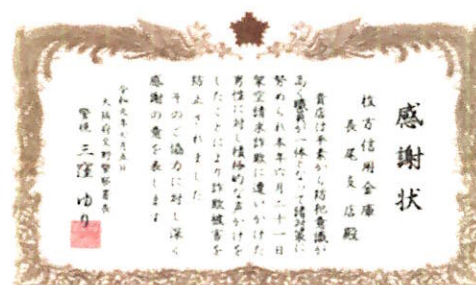 感謝状
枚方信用金庫
長尾支店殿
貴店は平素から防犯意識が
高く職員が一体となって諸対策に
努められ本年六月二十一日
架空請求詐欺に遭いかけた
男性に対し積極的な声かけを
したことにより詐欺被害を
防止されました
そのご協力に対し深く
感謝の意を表します
令和元年 月五日
大阪府交野警察署長
警視 三窪